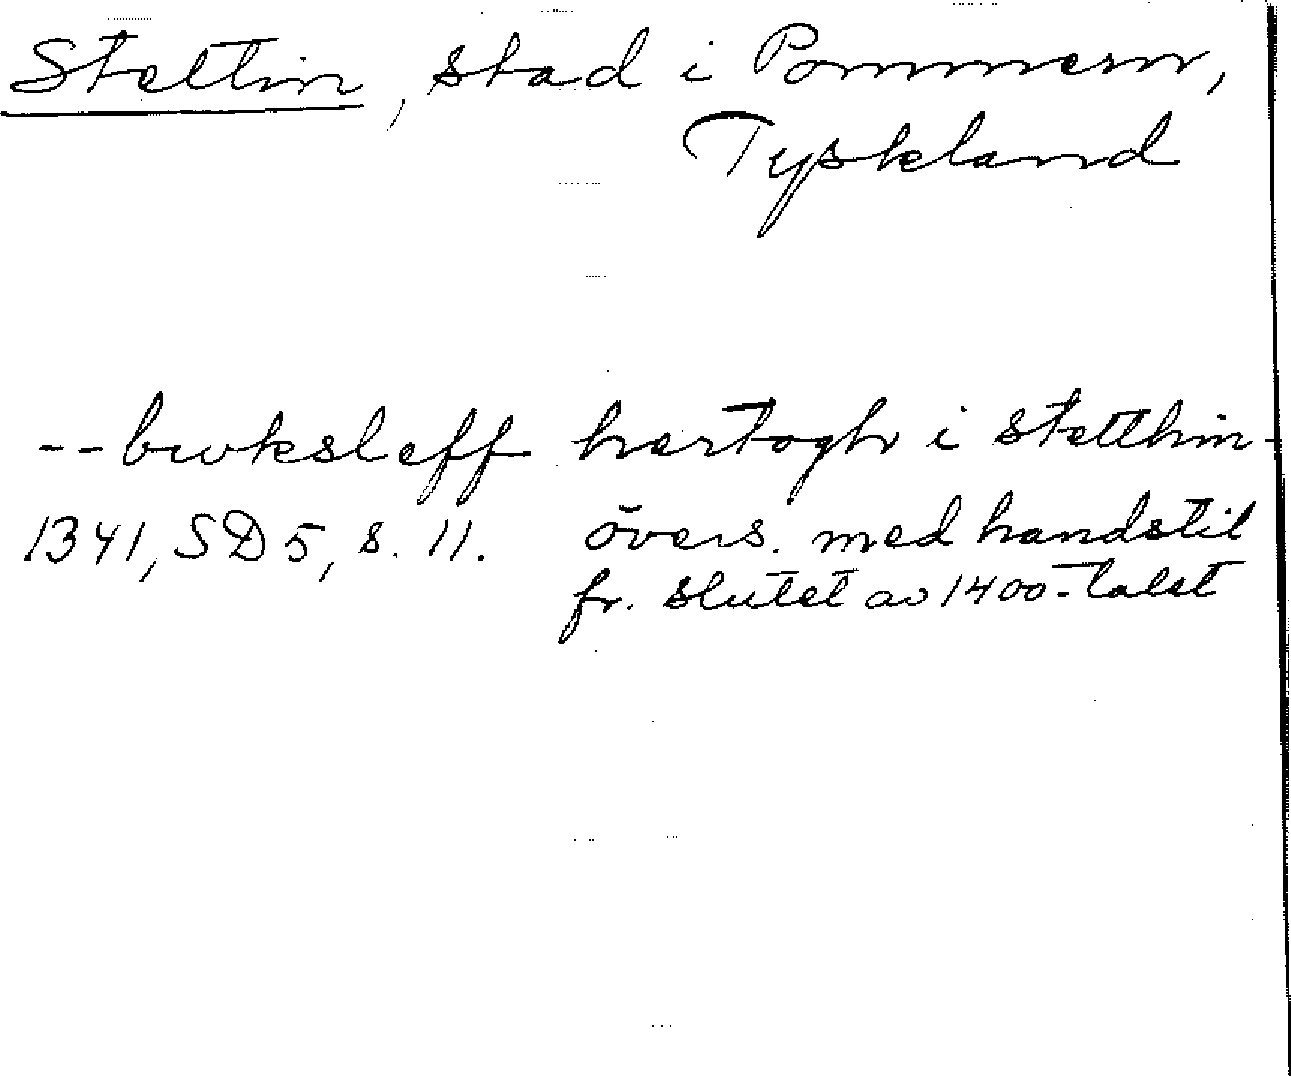 Stettin, stad i Pommern,
Tyskland
-- buksleff hertogh i stetthin -
1341, SD 5, s. 11. övers. med handstil
fr. slutet av 1400-talet